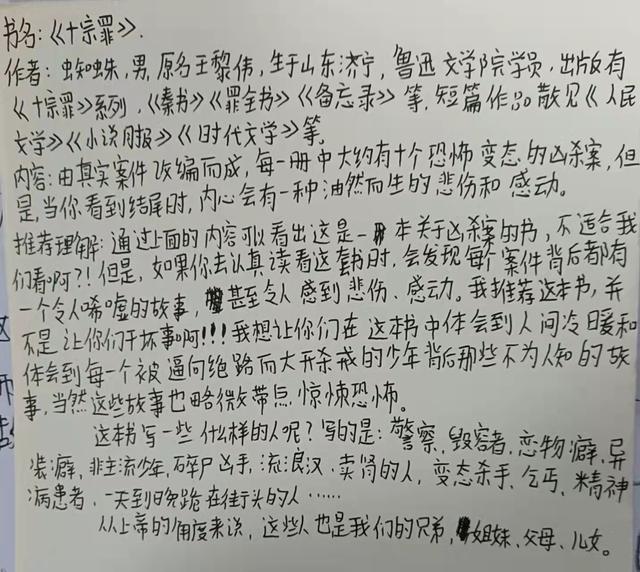 书名:《十宗罪》.
作者: 蜘蛛,男,原名王黎伟,生于山东济宁,鲁迅文学院学员,出版有
《十宗罪》系列,《秦书》《罪全书》《备忘录》等,短篇作品散见《人民
文学》《小说月报》《时代文学》等,
内容:由真实案件改编而成,每一册中大约有十个恐怖变态的凶杀案,但
是,当你看到结尾时,内心会有一种油然而生的悲伤和感动。
推荐理解:通过上面的内容可以看出这是一本关于凶杀案的书,不适合我
们看啊?!但是,如果你去认真读看这套书时,会发现每个案件背后都有
一个令人唏嘘的故事,甚至令人感到悲伤、感动。我推荐这本书,并
不是让你们干坏事啊!!!我想让你们在这本书中体会到人间冷暖和
体会到每一个被逼向绝路而大开杀戒的少年背后那些不为人知的故
事,当然这些故事也略微带点惊悚恐怖。
这本书写一些什么样的人呢?写的是:警察、毁容者、恋物癖、异
装癖,非主流少年,碎尸凶手,流浪汉、卖肾的人,变态杀手、乞丐、精神
病患者、一天到晚路在街头的人……
从上帝的角度来说,这些人也是我们的兄弟,姐妹、父母、儿女。